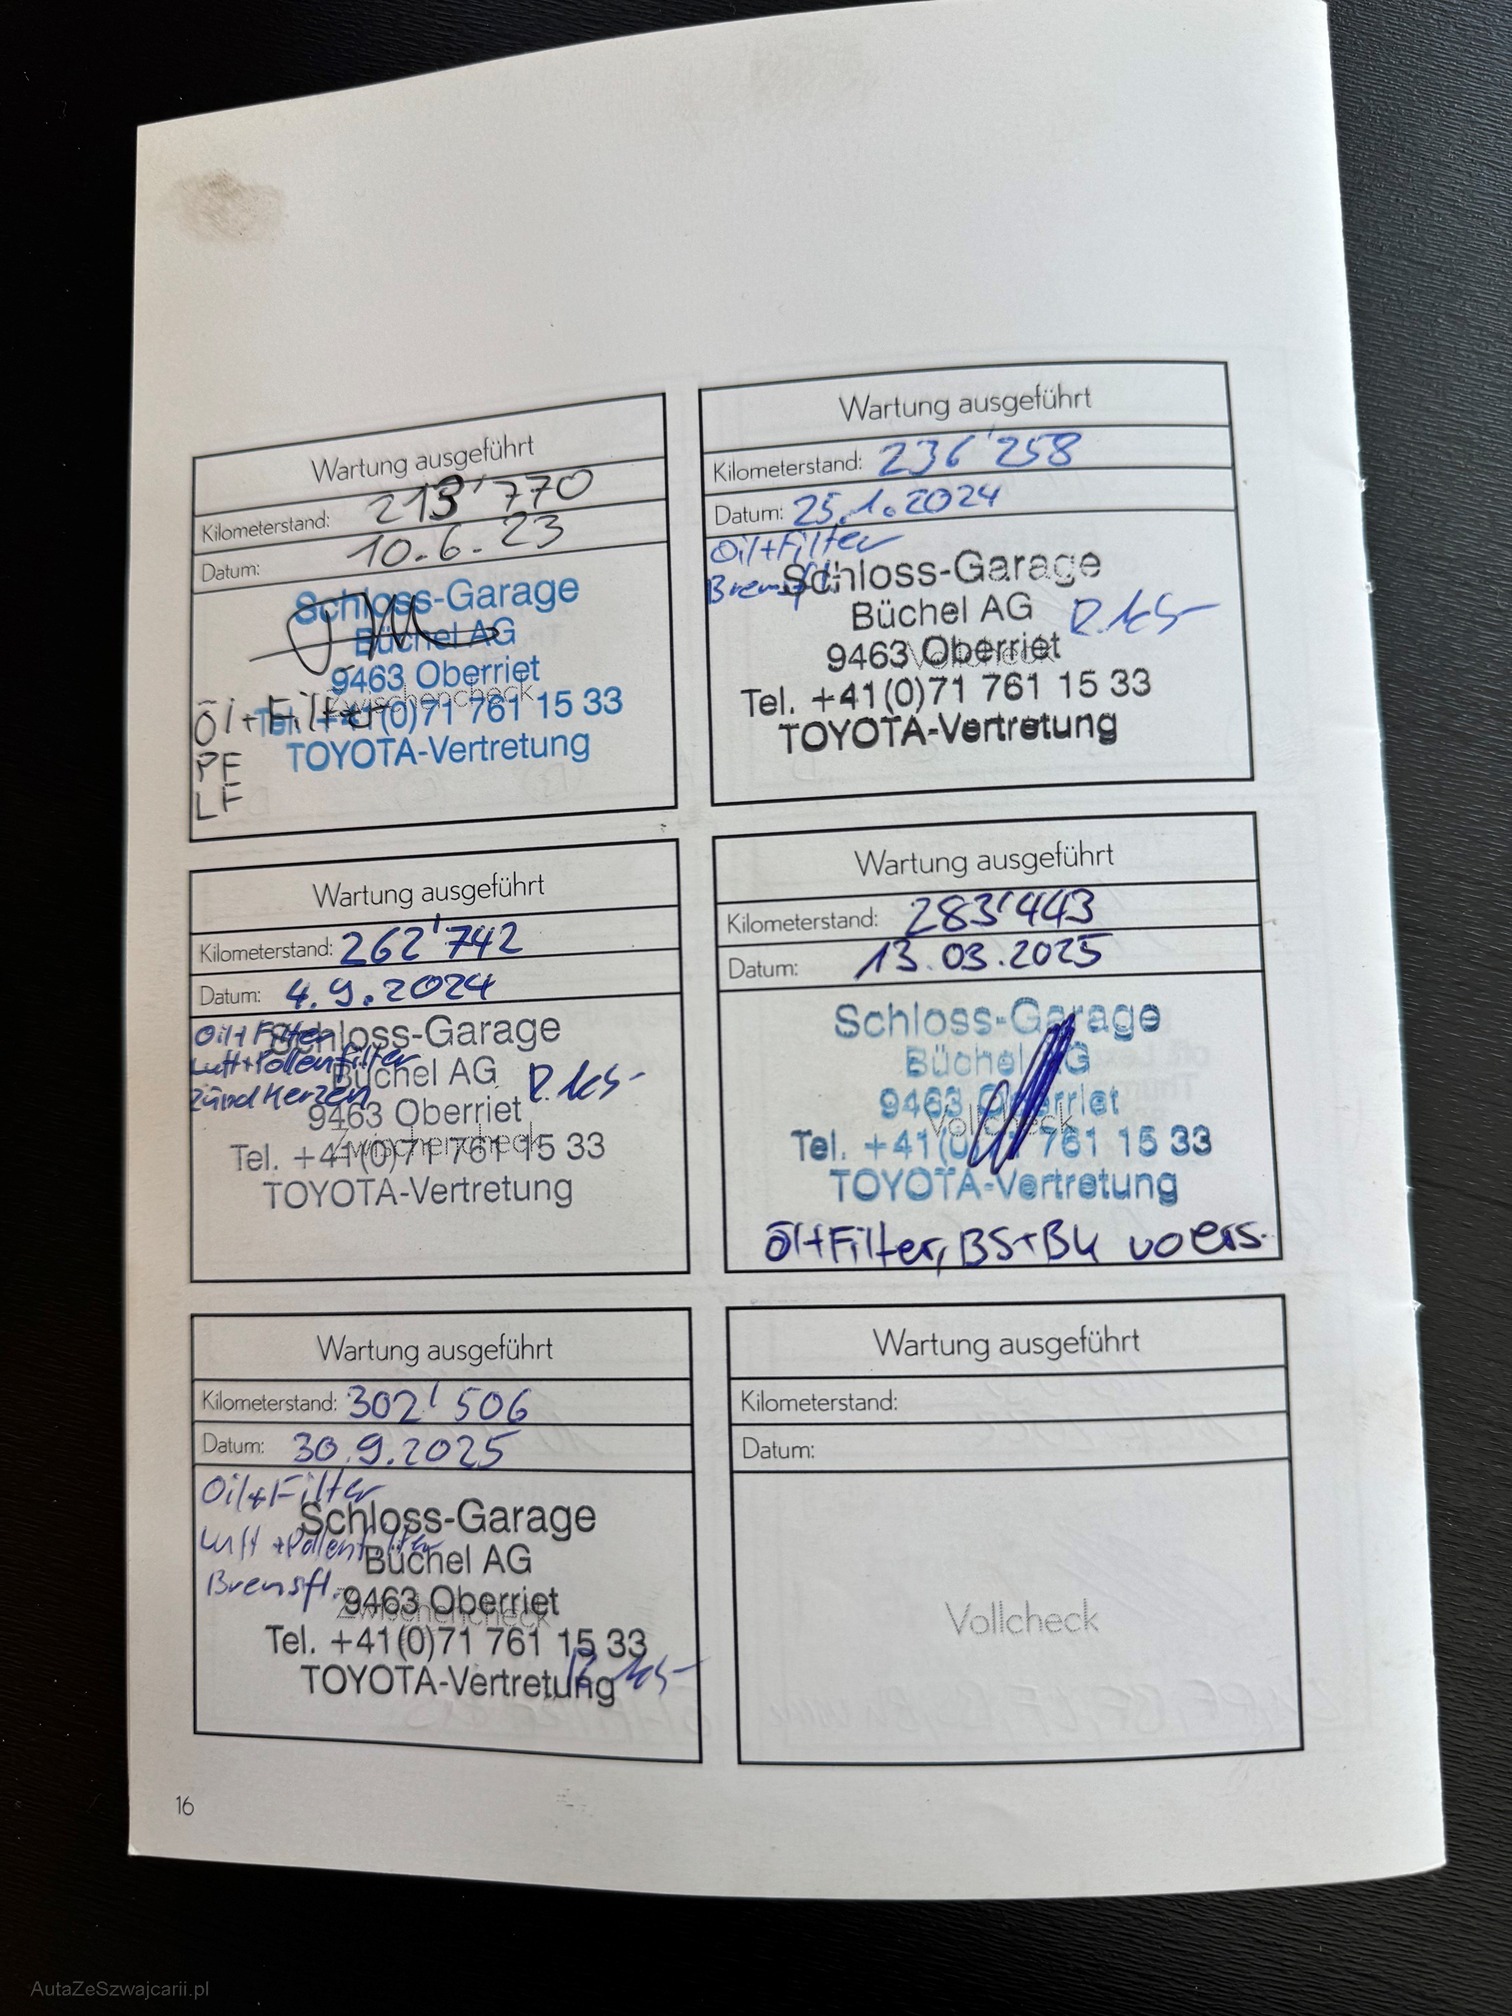 Wartung ausgeführt
Kilometerstand: 213'770
Datum: 10.6.23
Schloss-Garage
Büchel AG
9463 Oberriet
Zwischencheck
Öl+Filter
Tel. +41(0)71 761 15 33
TOYOTA-Vertretung
PF
LF
Wartung ausgeführt
Kilometerstand: 236'258
Datum: 25.1.2024
Oil+Filter
Bremsfl.
Schloss-Garage
Büchel AG
9463 Oberriet
Vollcheck
Tel. +41(0)71 761 15 33
TOYOTA-Vertretung
Wartung ausgeführt
Kilometerstand: 262'742
Datum: 4.9.2024
Oil+Filter
Luft+Pollenfilter
Zünd Kerzen
Schloss-Garage
Büchel AG
9463 Oberriet
Zwischencheck
Tel. +41(0)71 761 15 33
TOYOTA-Vertretung
Wartung ausgeführt
Kilometerstand: 283'443
Datum: 13.03.2025
Schloss-Garage
Büchel AG
9463 Oberriet
Vollcheck
Tel. +41(0)71 761 15 33
TOYOTA-Vertretung
Öl+Filter, BS+BK
Wartung ausgeführt
Kilometerstand: 302'506
Datum: 30.9.2025
Oil+Filter
Luft+Pollenfilter
Bremsfl.
Schloss-Garage
Büchel AG
9463 Oberriet
Zwischencheck
Tel. +41(0)71 761 15 33
TOYOTA-Vertretung
Wartung ausgeführt
Kilometerstand:
Datum:
Vollcheck
16
AutaZeSzwajcarii.pl